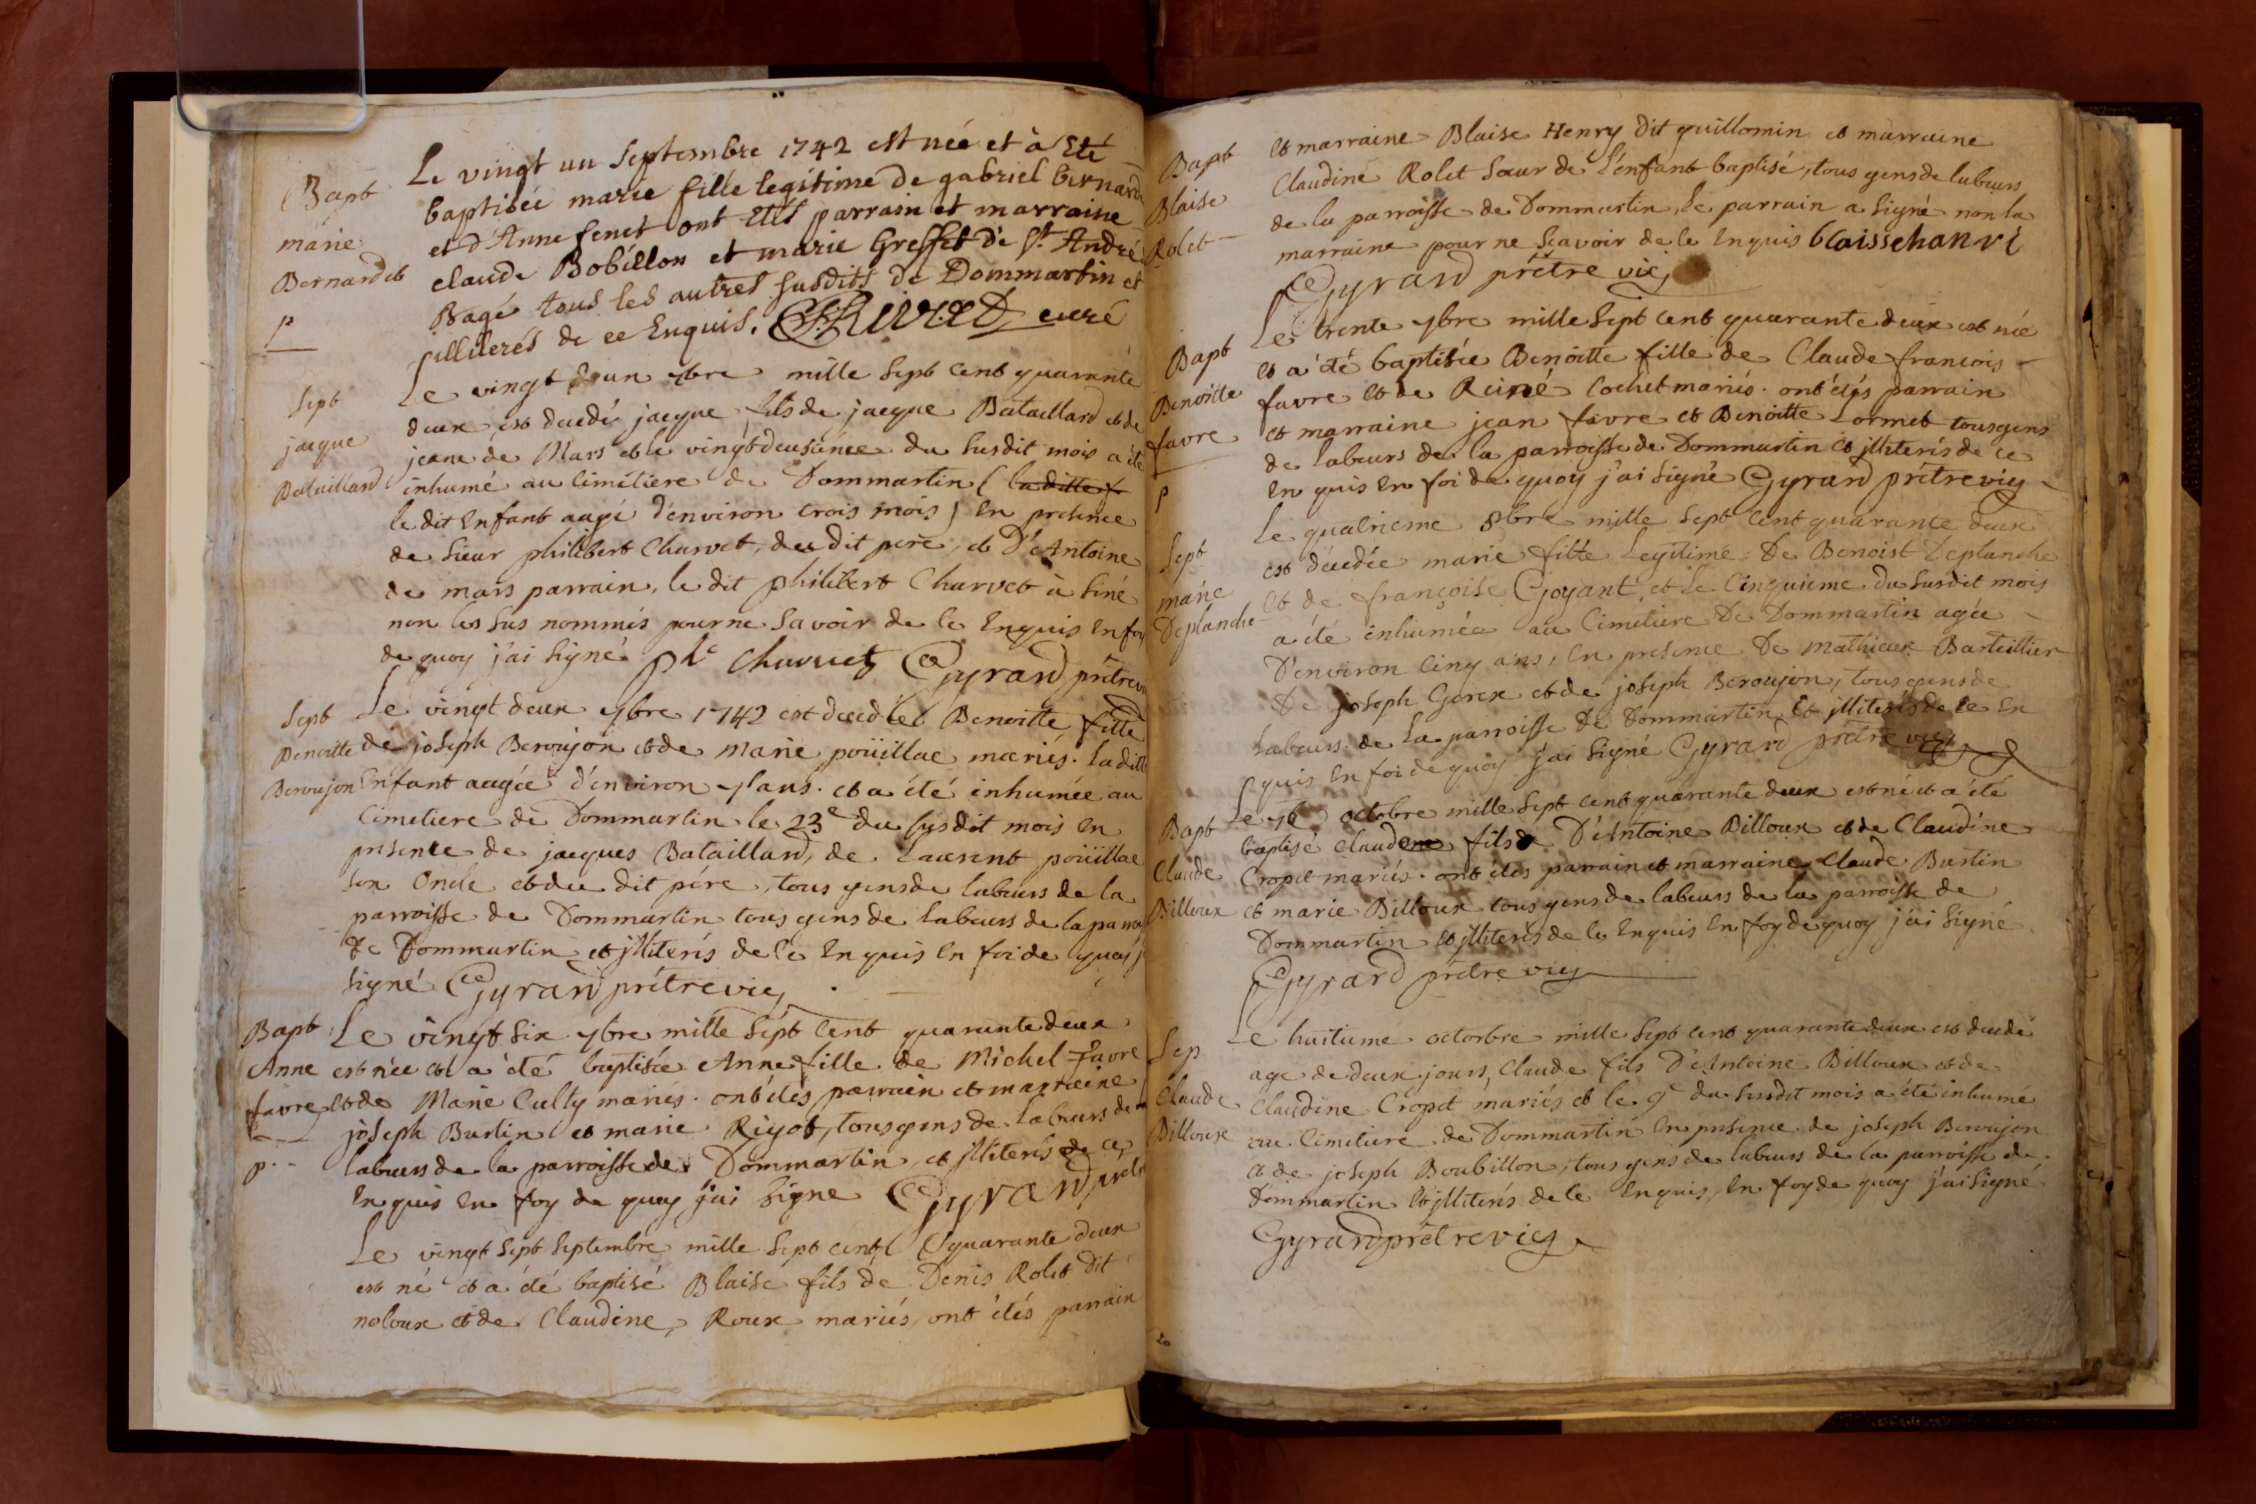 Bapt
marie
Bernardet
p
Le vingt un Septembre 1742 est née et à Eté
baptisée marie fille legitime de gabriel bernard
et d'Anne fenet ont Etés parrain et marraine
claude Bobillon et marie Greffet de St. André
Bagé tous les autres susdits de Dommartin et
illiterés de ce Enquis. Rivat curé
Sept
jacque
Bataillard
Le vingt un 7bre mille Sept cent quarante
deux est decedé jacque fils de jacque Bataillard et de
jeane de Mars et le vingt deusieme du susdit mois a été
inhumé au cimetiere de Dommartin ( la ditte f
le dit Enfant aagé d'environ trois mois ) En presence
de Sieur philibert Charvet, du dit pere, et D'Antoine
de mars parrain, le dit philibert Charvet à siné
non les sus nommés pour ne Savoir de ce Enquis En foy
de quoy j'ai signé phe Charvet Gyrard prêtre vic
Sept
Benoitte
Beroujon
Le vingt deux 7bre 1742 est decedée Benoitte fille
de joseph Beroujon et de marie poüillac mariés. la ditte
Enfant aagée d'environ 7 ans. et a été inhumée au
Cimetiere de Dommartin le 23e du susdit mois en
presence de jacques Bataillard, de Laurent poüillac
son Oncle et du dit pére, tous gens de labeurs de la
parroisse de Dommartin tous gens de labeurs de la parroi
de Dommartin et jlliterés de ce Enquis En foi de quoy j
signé Gyrard prêtre vic
Bapt
Anne
favre
p
Le vingt six 7bre mille sept cent quarante deux
est née et a été baptisée Anne fille de Michel favre
et de Marie Cully mariés. ont étés parrain et marraine
joseph Burtin et marie Rigot, tous gens de labeurs de
labeurs de la parroisse de Dommartin et jlliterés de ce
Enquis En foy de quoy j'ai signe Gyrard pretr
Le vingt sept Septembre mille sept cent quarante deux
est né et a été baptisé Blaise fils de Denis Rolet dit
noloux et de Claudine Roux mariés, ont étés parrain
Bapt
Blaise
Rolet
et marraine Blaise Henry dit guillomin et marraine
Claudine Rolet Sœur de L'enfant baptisé, tous gens de labeurs
de la parroisse de Dommartin, le parrain a signé non la
marraine pour ne sçavoir de ce Enquis blaissehanri
Gyrard prêtre vic
Bapt
Benoitte
favre
p
Le trente 7bre mille sept cent quarante deux est née
et a été baptisée Benoitte fille de Claude françois
favre et de Reiné Cochet mariés. ont étés parrain
et marraine jean favre et Benoitte Lormet tous gens
de labeurs de la parroisse de Dommartin et jlliterés de ce
Enquis En foi de quoy j'ai signé Gyrard prêtre vic
Sept
marie
Deplanche
Le quatrieme 8bre mille sept cent quarante deux
est décedée marie fille Legitime De Benoist Deplanche
et de françoise Goyant, et le Cinquieme du susdit mois
a été inhumée au Cimetiere De Dommartin agée
D'environ cinq ans, en presence De mathieux Barteillier
De joseph Gerex et de joseph Beroujon, tous gens de
Labeurs de La parroisse De Dommartin, Et jlliterés de ce En
quis En foi de quoy j'ai signé Gyrard prêtre vic
Bapt
Claude
Billoux
Le octobre mille sept cent quarante deux est né et a été
baptisé Claude fils D'Antoine Billoux et de Claudine
Cropet mariés. ont étés parrain et marraine Claude Burtin
et marie Billoux tous gens de labeurs de la parroisse de
Dommartin et jlliterés de ce Enquis En foy de quoy j'ai signé
Gyrard prêtre vic
Sep
Claude
Billoux
Le huitieme octorbre mille sept cent quarante deux est decedé
age de deux jours, Claude fils D'Antoine Billoux et de
Claudine Cropet mariés et le 9e du susdit mois a été inhumé
au Cimetiere de Dommartin En presence de joseph Beroujon
et de joseph Boubillon, tous gens de labeurs de la parroisse de
Dommartin et jlliterés de ce Enquis, En foy de quoy j'ai signé
Gyrard prêtre vic